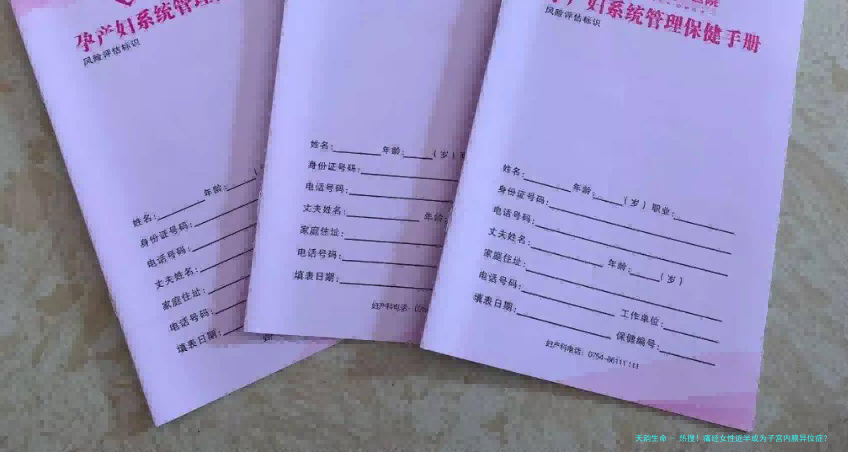 孕产妇系统管理
风险评估标识
姓名: 年龄:
身份证号码:
电话号码:
丈夫姓名:
家庭住址:
电话号码:
填表日期:
姓名: 年龄: (岁)
身份证号码:
电话号码:
丈夫姓名: 年龄:
家庭住址:
电话号码:
填表日期:
妇产科电话:
院
产妇系统管理保健手册
风险评估标识
姓名: 年龄: (岁) 职业:
身份证号码:
电话号码:
丈夫姓名: 年龄: (岁)
家庭住址:
电话号码: 工作单位:
填表日期: 保健编号:
妇产科电话: 0754-86111111
天韵生命 - 热搜! 痛经女性近半或为子宫内膜异位症?